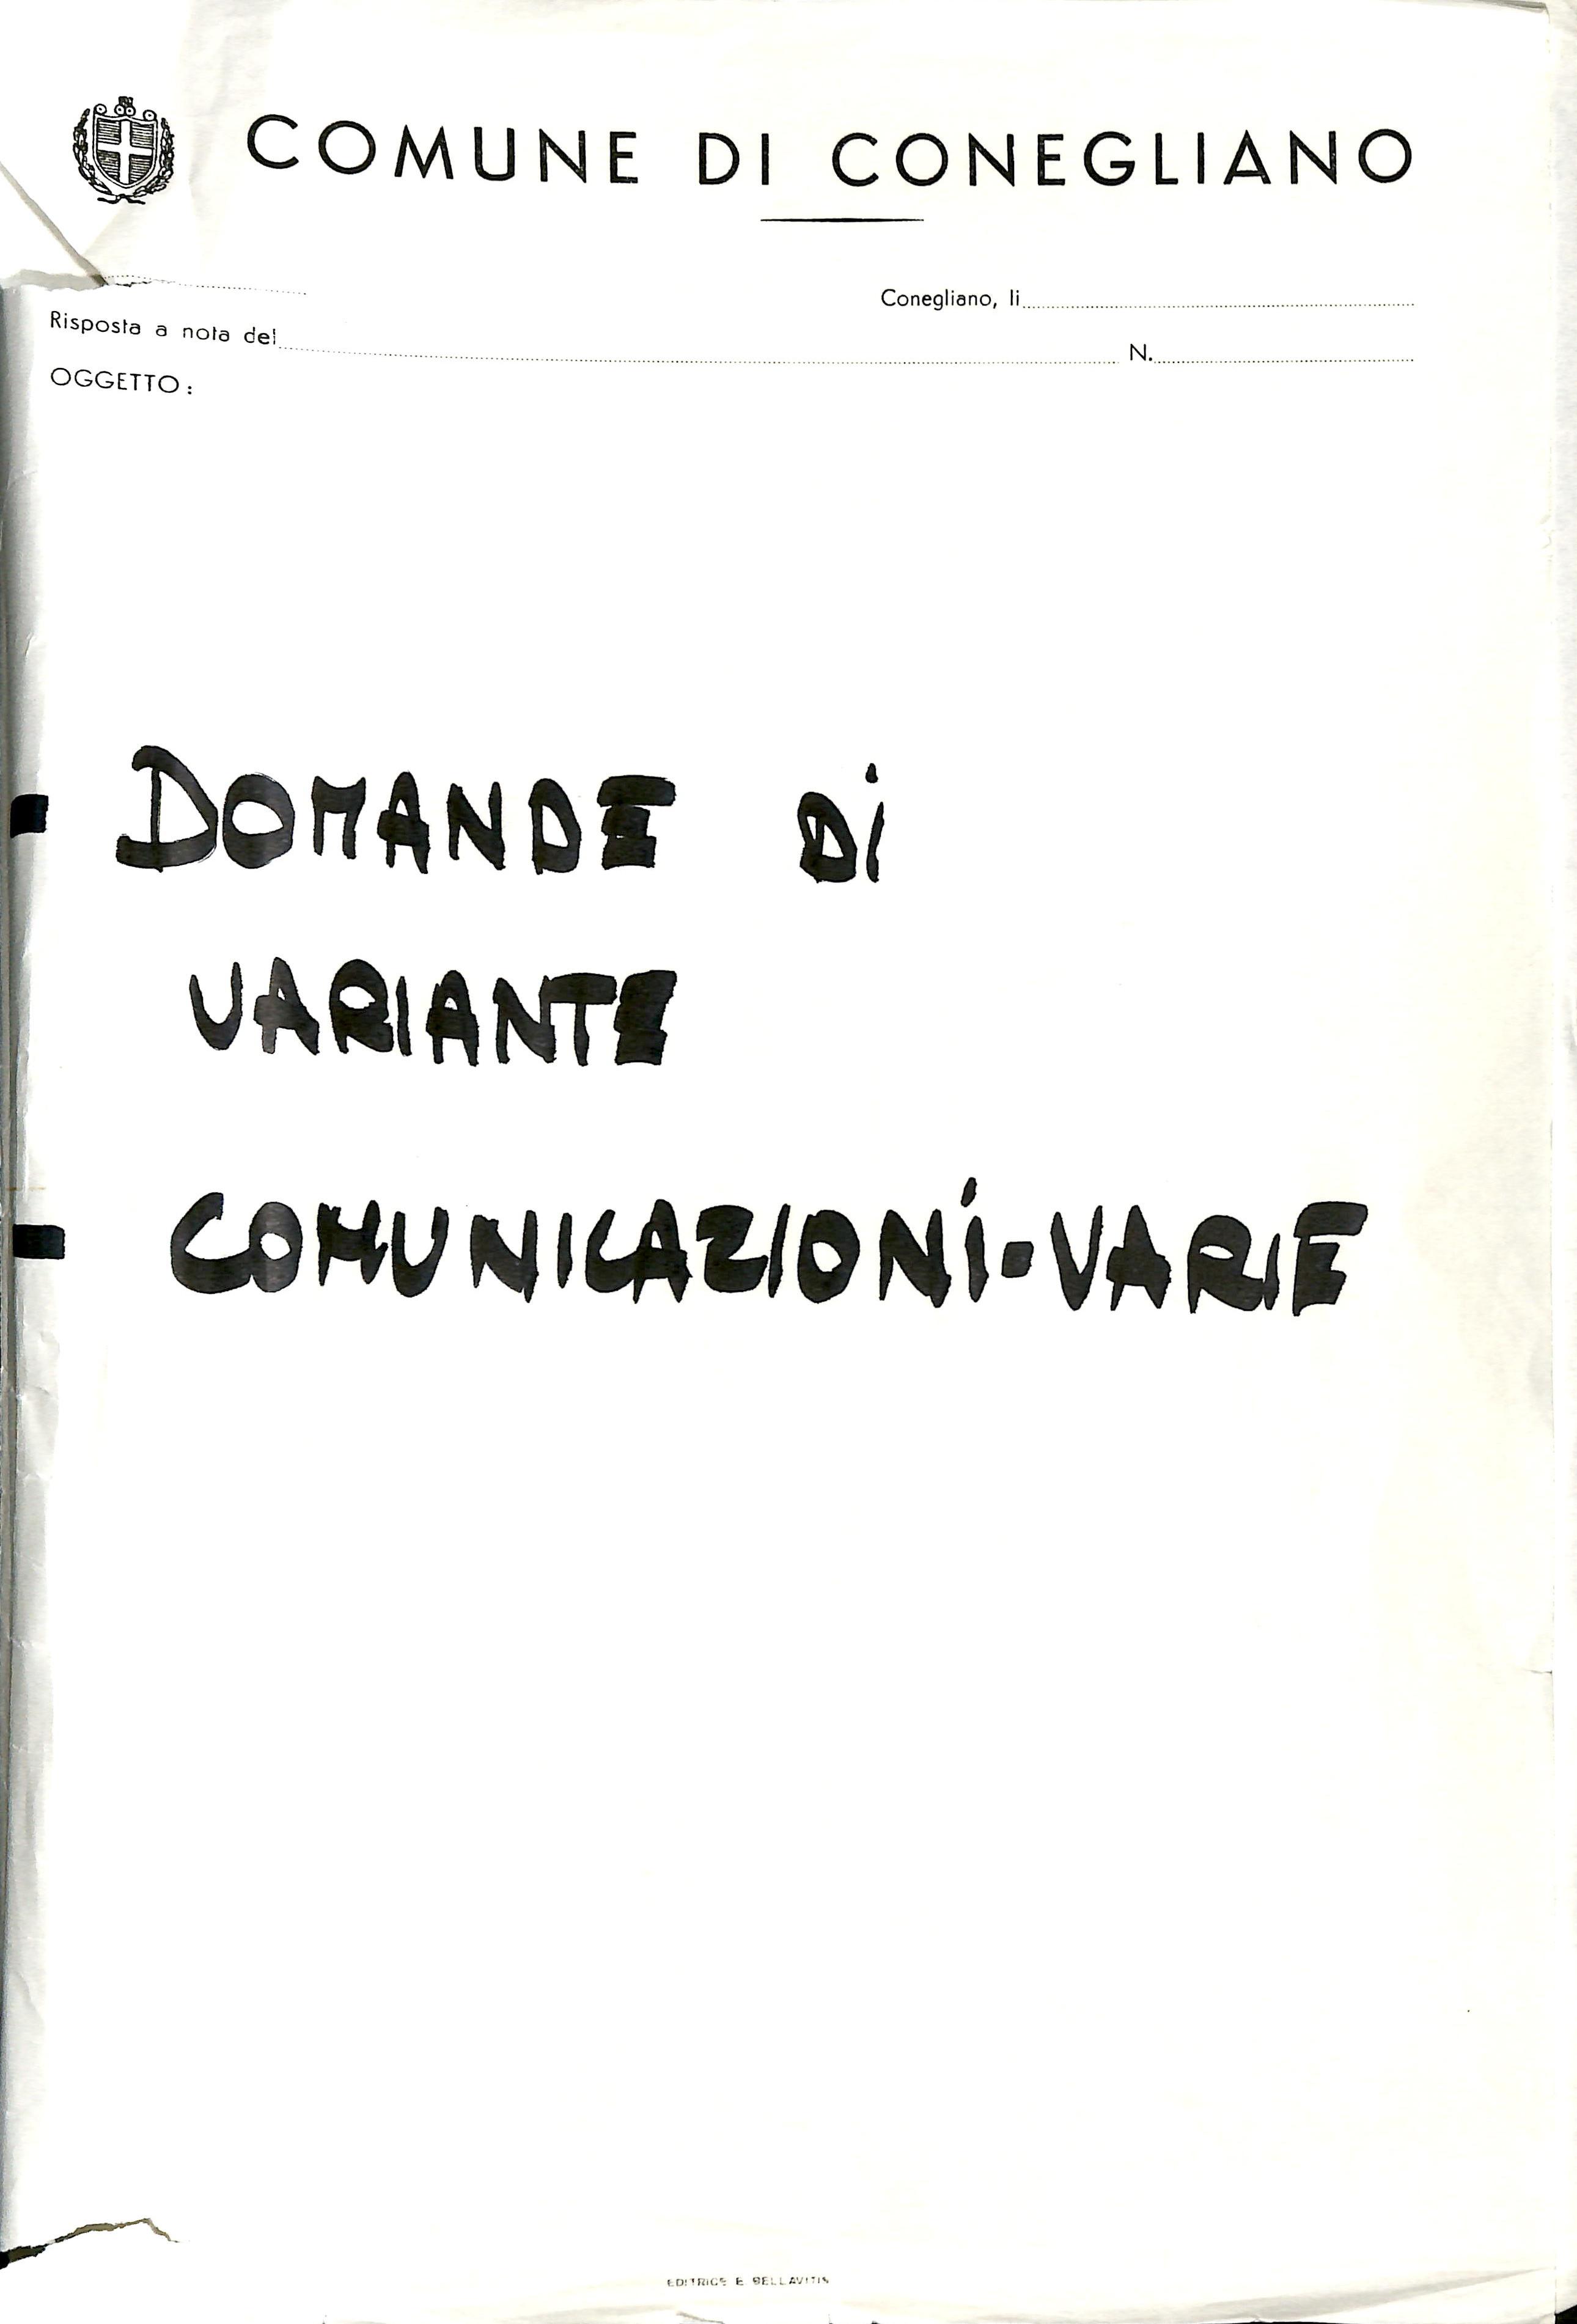 COMUNE DI CONEGLIANO
Conegliano, li
Risposta a nota del
N.
OGGETTO:
DOMANDE Di
VARIANTE
COMUNICAZIONi-VARIE
EDITRICE E BELLAVITIS